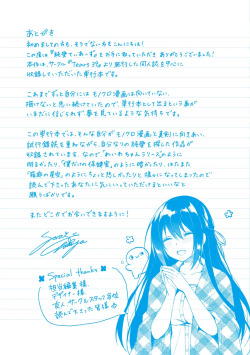 あとがき
初めましての方も、そうでない方もこんにちは!
この度は『純愛てぃーず』をお手に取っていただきありがとうございました!
本作は、サークル『Tears 39』より発行した同人誌を中心に
収録していただいた単行本です。
これまでずっと自分にはモノクロ漫画は向いていない、
描けないと思い続けていたので、単行本として出るという事が
いまだに信じられず夢を見ているような気持ちです。
この単行本では、そんな自分がモノクロ漫画と真剣に向きあい、
試行錯誤を重ねながら、自分なりの純愛を探した作品が
収録されています。なので、『わいわちゃんシリーズ』のように
明るかったり、『僕だけの保健室』のように暗かったり、はたまた
『箱庭の星空』のようにちょっと悲しかったりと様々になってしまったので
読んで下さったあなたに気にいっていただけるといいなと
願うばかりです。
またどこかでお会いできますように!
Special thanks
担当編集様
デザイナー様
友人・サークルスタッフ各位
読んで下さった皆様